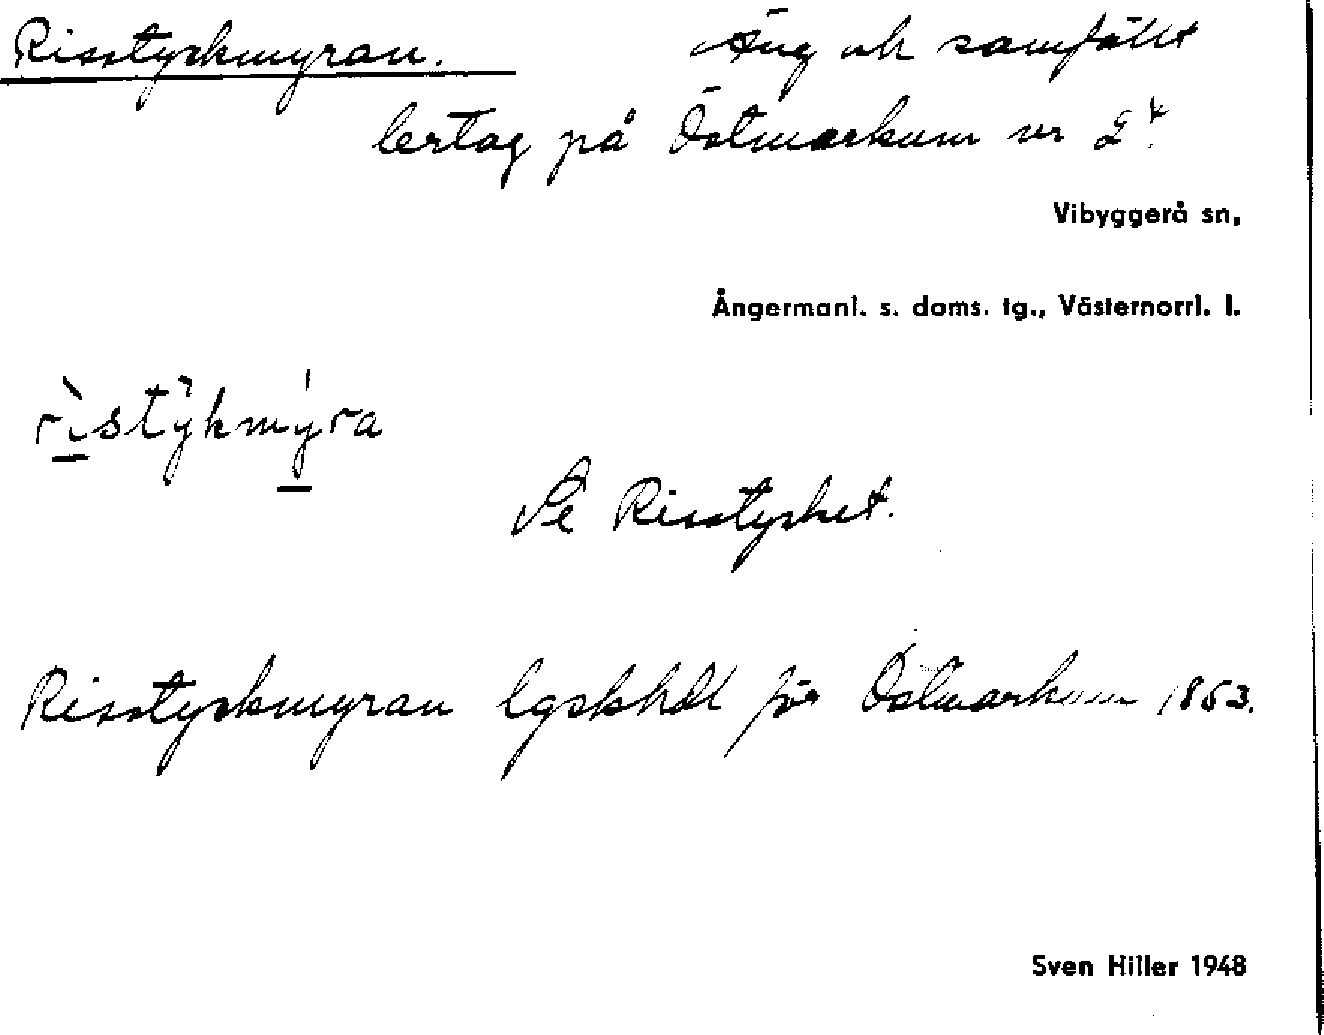 Risstyckmyran. Äng och samfällt
lertag på Östmarkum nr 2⁴.
Vibyggerå sn,
Ångermanl. s. doms. tg., Västernorrl. l.
rìstỳkmýra
Se Risstycket.
Risstyckmyran lgskhdl för Östmarkum 1863.
Sven Hiller 1948